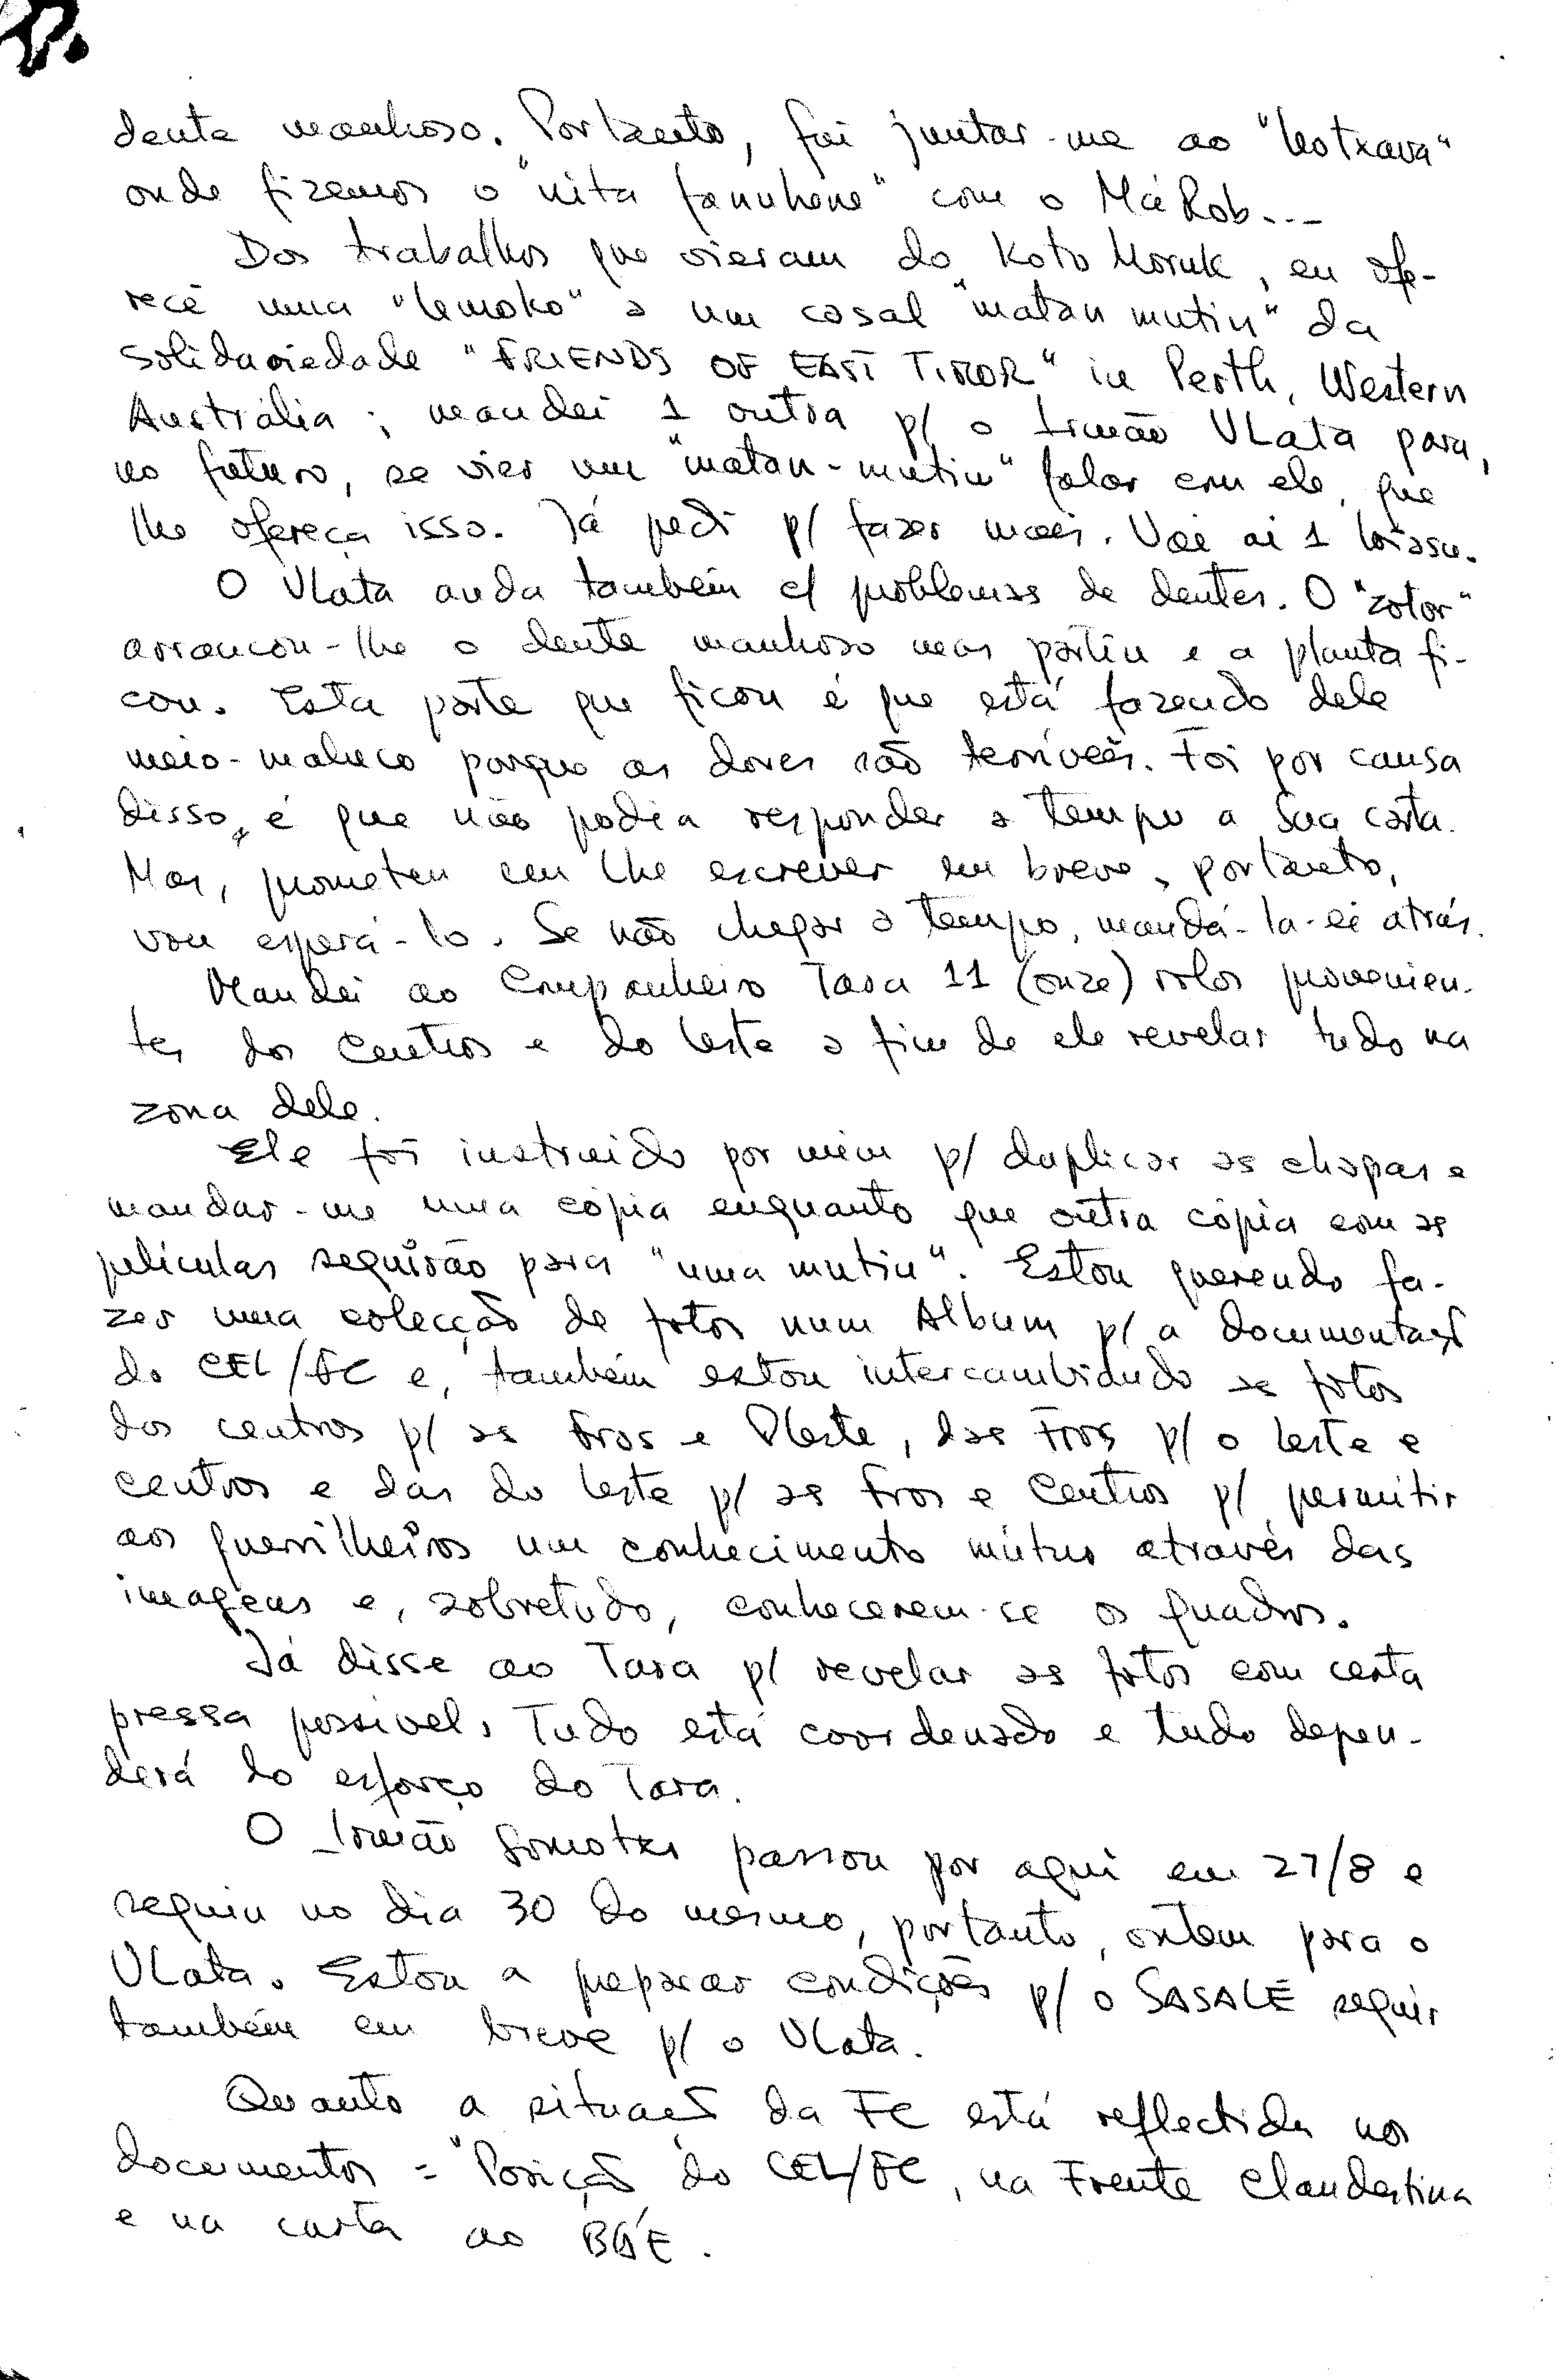 dente manhoso. Portanto, foi juntar-me ao "kotxava"
onde fizemos o "nita fanuhene" com o Má Rob...
Dos trabalhos que vieram do Koto Moruk, eu ofe-
recé uma "lemoko" a um casal "matan mutin" da
solidariedade "FRIENDS OF EAST TIMOR" in Perth, Western
Austrália; mandei 1 outra p/ o Irmão Ulata para,
no futuro, se vier um "matan-mutin" falar com ele, que
lhe ofereça isso. Já pedi p/ fazer mais. Vai aí 1
O Ulata anda também c/ problemas de dentes. O "zotor"
arrancou-lhe o dente manhoso mas partiu e a planta fi-
cou. Esta parte que ficou é que está fazendo dele
meio-maluco porque as dores são terríveis. Foi por causa
disso, é que não podia responder a tempo a sua carta.
Mas, prometeu em lhe escrever em breve, portanto,
vou esperá-lo. Se não chegar a tempo, mandá-la-ei atrás.
Mandei ao Companheiro Tara 11 (onze) rolos provenien-
tes dos Centros e do leste a fim de ele revelar tudo na
zona dele.
Ele foi instruido por mim p/ duplicar as chapas e
mandar-me uma cópia enquanto que outra cópia com as
películas seguirão para "uma mutin". Estou querendo fa-
zer uma colecção de fotos num Album p/ a documentação
do CEL/FC e, também estou intercambiando as fotos
dos centros p/ as Fros e Pleste, das Fros p/ o leste e
centros e das do leste p/ as Fros e Centros p/ permitir
aos guerrilheiros um conhecimento mútuo através das
imagens e, sobretudo, conhecerem-se os quadros.
Já disse ao Tara p/ revelar as fotos com certa
pressa possível. Tudo está coordenado e tudo depen-
derá do esforço do Tara.
O Irmão Somotxo passou por aqui em 27/8 e
seguiu no dia 30 do mesmo, portanto, ontem para o
Ulata. Estou a preparar condições p/ o SASALE seguir
também em breve p/ o Ulata.
Quanto a situação da FC está reflectida nos
documentos = "Posição do CEL/FC, na Frente Clandestina
e na carta ao BGE.